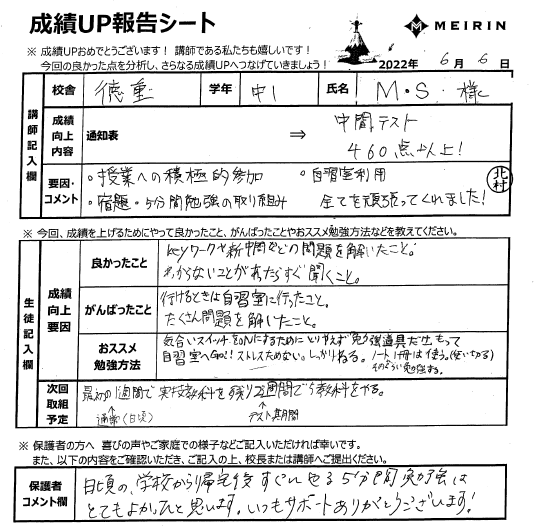 成績UP報告シート
MEIRIN
※ 成績UPおめでとうございます！ 講師である私たちも嬉しいです！
今回の良かった点を分析し、さらなる成績UPへつなげていきましょう！
2022年 6月 6日
校舎 徳重 学年 中1 氏名 M・S 様
講師記入欄
成績向上内容 通知表 ⇒ 中間テスト
460点以上！
要因・コメント
・授業への積極的参加 ・自習室利用
・宿題・5分間勉強の取り組み 全てを頑張ってくれました！
北村
※ 今回、成績を上げるためにやって良かったこと、がんばったことやおススメ勉強方法などを教えてください。
生徒記入欄
成績向上要因
良かったこと
keyワークや新中問などの問題を解いたこと。
わからないことがあったらすぐ聞くこと。
がんばったこと
行けるときは自習室に行ったこと。
たくさん問題を解いたこと。
おススメ勉強方法
気合いスイッチをONにするためにとりあえず勉強道具だけもって
自習室へGo!! ストレスためない。しっかりねる。ノート1冊は使う。(使い切る)
そのくらい勉強する。
次回取組予定
最初の1週間で実技教科を残り2週間で5教科をやる。
通常(日頃) テスト期間
※ 保護者の方へ 喜びの声やご家庭での様子などご記入いただければ幸いです。
また、以下の内容をご確認いただき、ご記入の上、校長または講師へご提出ください。
保護者コメント欄
日頃の、学校から帰宅後すぐにやる5分間勉強は
とてもよかったと思います。いつもサポートありがとうございます！